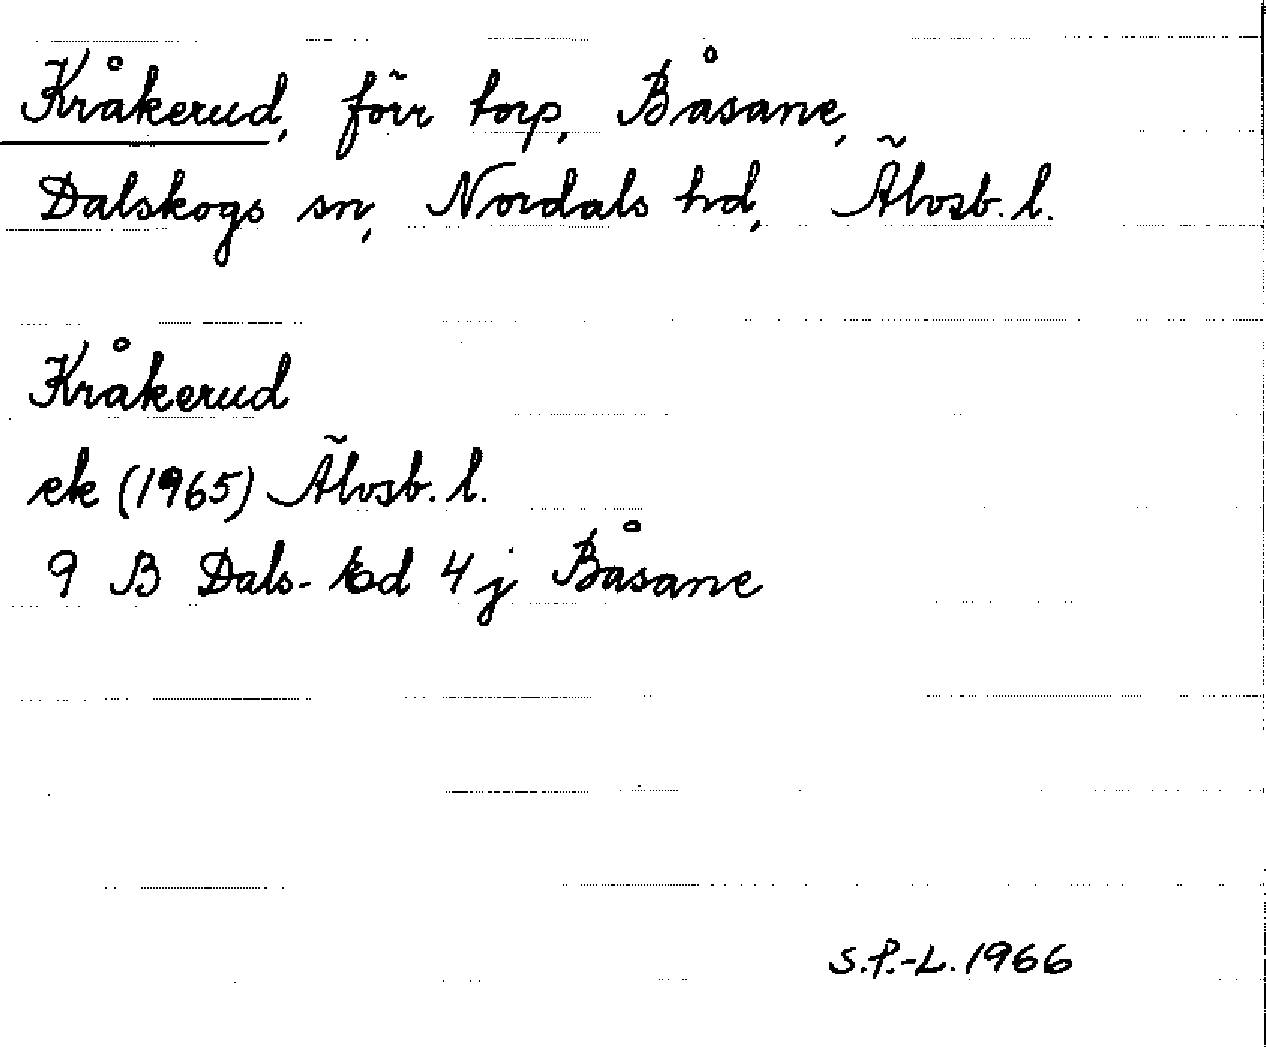 Kråkerud, förr torp, Båsane,
Dalskogs sn, Nordals hd, Älvsb. l.
Kråkerud
ek (1965) Älvsb. l.
9 B Dals-Ed 4 j Båsane
S.P.-L. 1966